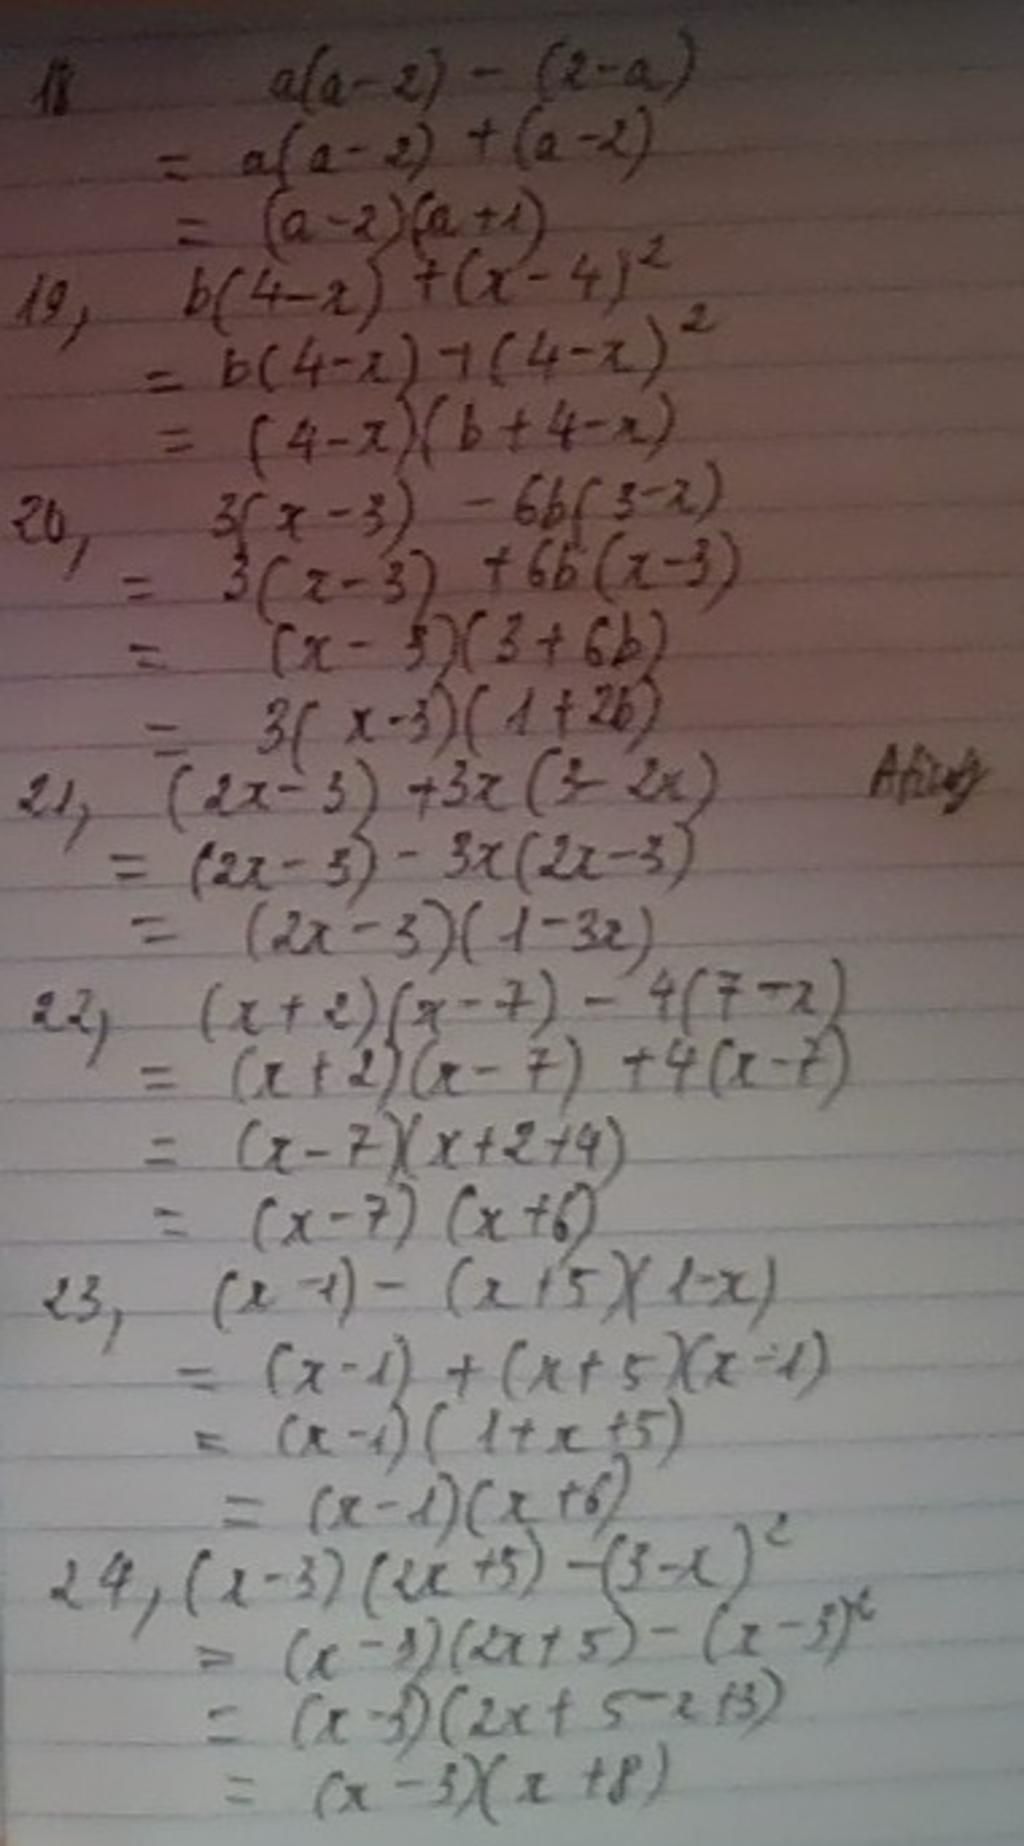 18 a(a-2) - (2-a)
= a(a-2) + (a-2)
= (a-2)(a+1)
19, b(4-x) + (x-4)²
= b(4-x) + (4-x)²
= (4-x)(b+4-x)
20, 3(x-3) - 6b(3-x)
= 3(x-3) + 6b(x-3)
= (x-3)(3+6b)
= 3(x-3)(1+2b)
21, (2x-3) + 3x(3-2x)
= (2x-3) - 3x(2x-3)
= (2x-3)(1-3x)
22, (x+2)(x-7) - 4(7-x)
= (x+2)(x-7) + 4(x-7)
= (x-7)(x+2+4)
= (x-7)(x+6)
23, (x-1) - (x+5)(1-x)
= (x-1) + (x+5)(x-1)
= (x-1)(1+x+5)
= (x-1)(x+6)
24, (x-3)(2x+5) - (3-x)²
= (x-3)(2x+5) - (x-3)²
= (x-3)(2x+5-x+3)
= (x-3)(x+8)